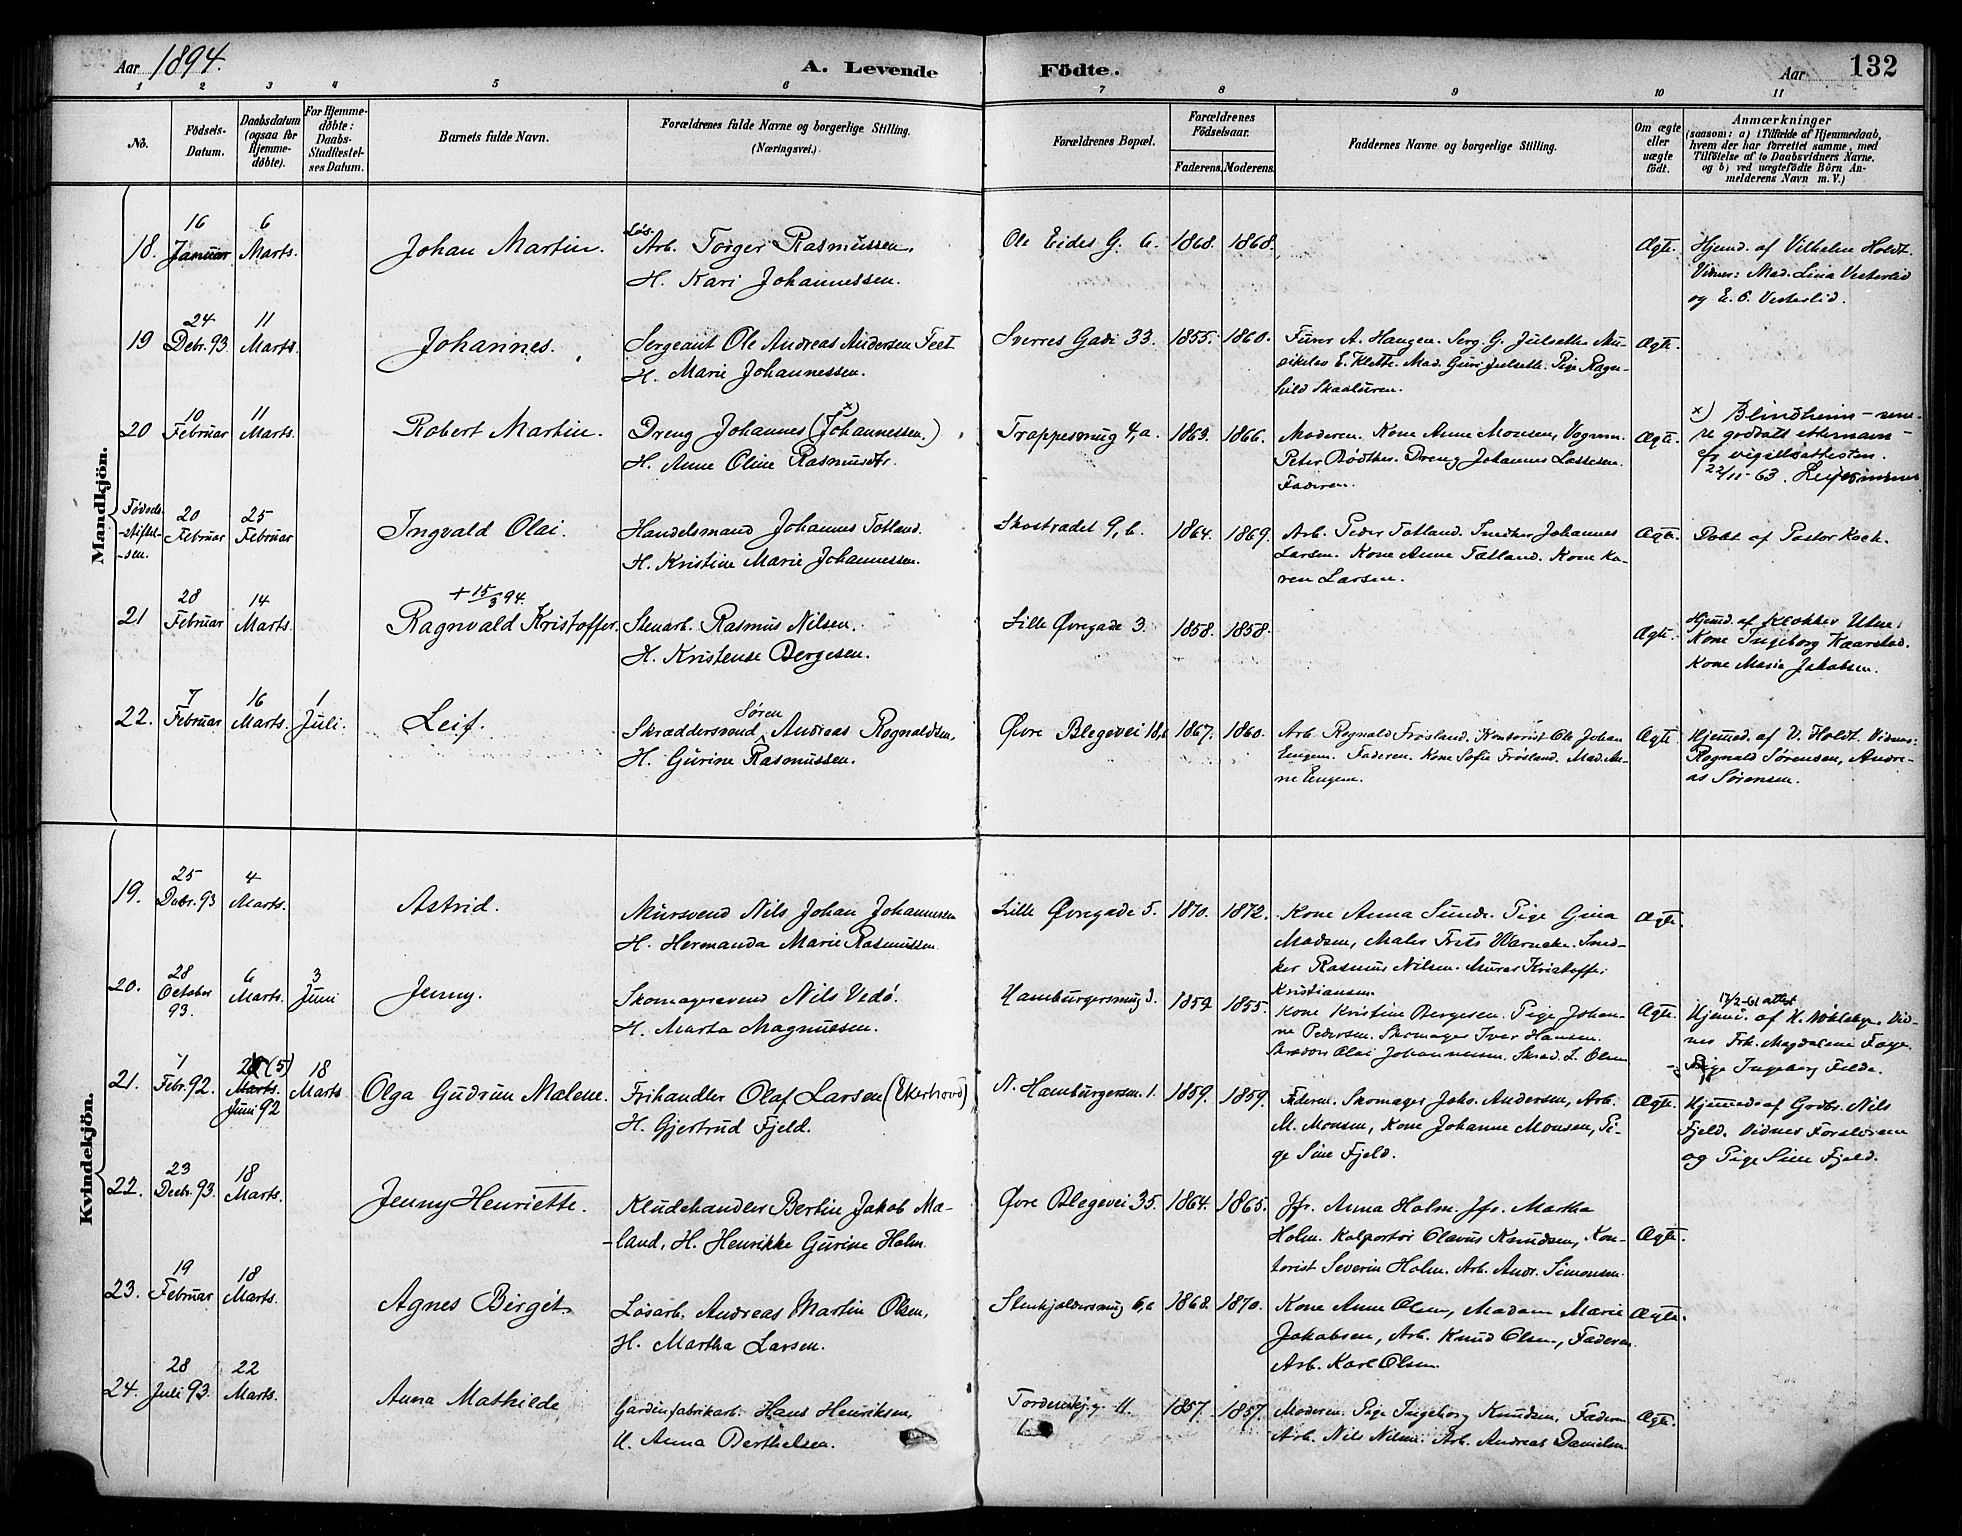 Aar 1894. A. Levende Födte. Aar 132
1 2 3 4 5 6 7 8 9 10 11
No.
Födsels-Datum.
Daabsdatum (ogsaa for Hjemme-døbte).
For Hjemme-døbte: Daabs-Stadfæstel-ses Datum.
Barnets fulde Navn.
Forældrenes fulde Navne og borgerlige Stilling. (Næringsvei.)
Forældrenes Bopæl.
Forældrenes Födselsaar.
Faderens. Moderens.
Faddernes Navne og borgerlige Stilling.
Om ægte eller uægte født.
Anmærkninger
(saasom: a) i Tilfælde af Hjemmedaab, hvem der har forrettet samme, med Tilföielse af to Daabsvidners Navne, og b) ved uægtefödte Börn Anmelderens Navn m. V.)
Mandkjön.
18. 16 Januar 6 Marts. Johan Martin. Løs. Arb. Torger Rasmussen. Ole Eides G. 6. 1868. 1868. Ægte. Hjemd. af Vilhelm Holdt.
H. Kari Johannessen. Vidner: Mad. Lina Vesterlid
og E. O. Vesterlid.
19 24 Decbr. 93. 11 Marts. Johannes. Sergeant Ole Andreas Andersen Feet Sverres Gade 33. 1855. 1860. Furer A. Haugen. Serg. G. Julseth. Mu-
H. Marie Johannessen. sikeler E. Kleth. Mad. Guri Julseth. Pige Ragn-
hild Skaaluren. Ægte.
20 10 Februar 11 Marts. Robert Martin. Dreng Johannes (Johannessen.) x) Trappesmug 4,a. 1863. 1866. Moderen. Kone Anne Monsen, Vognm.
H. Anne Oline Rasmusdtr. Peter Bödtker. Dreng Johannes Lassesen.
Faderen. Ægte. x) Blindheim - sene-
re godtatt etternavn -
cfr vigselsattesten.
22/11-63.
Fødsels-
-stiftel-
-sen. 20 Februar 25 Februar Ingvald Olai. Handelsmand Johannes Totland. Skostrædet 9,b. 1864. 1869. Arb. Peder Totland. Snedker Johannes
H. Kristine Marie Johannessen. Larsen. Kone Anne Totland. Kone Ka-
ren Larsen. Ægte. Døbt af Pastor Koch.
21 28 Februar 14 Marts. + 15/3 94. Ragnvald Kristoffer. Stenarb. Rasmus Nilsen. Lille Øvregade 3. 1858. 1858. Ægte. Hjemd. af Klokker Utne:
H. Kristense Bergesen. Kone Ingeborg Kaarstad.
Kone Marie Jakobsen.
22. 7 Februar 16 Marts. 1 Juli. Leif. Skræddersvend Søren Andreas Rognaldsen, Øvre Blegevei 18,b 1867. 1860. Arb. Rognald Frøsland. Kontorist Ole Johan
H. Gurine Rasmussen. Engen. Faderen. Kone Sofie Frøsland. Mad. An-
ne Engen. Ægte. Hjemmed. af V. Holdt. Vidner:
Rognald Sørensen, Andre-
as Sørensen.
Kvindekjön.
19. 25 Decbr. 93 4 Marts. Astrid. Mursvend Nils Johan Johannessen Lille Øvregade 5. 1870. 1872. Kone Anna Sunde. Pige Gina
H. Hermanda Marie Rasmussen. Madsen, Maler Frits Warneke. Sned-
ker Rasmus Nilsen. Murer Kristoffer
Kristiansen. Ægte.
20. 28 October 93. 6 Marts. 3 Juni Jenny. Skomagersvend Nils Vedø. Hamburgersmug 3. 1859 1855. Kone Kristine Bergesen. Pige Johan-
H. Marta Magnussen. ne Pedersen. Skomager Iver Hansen.
Skrædder Olai Johannessen. Skræd. L. Olsen Ægte. 17/2-61 attest
Hjemd. af H. Nøkleby. Vid-
nes Frk. Magdalene Faye.
Pige Ingeborg Felde.
21. 1 Febr. 92. (5) Marts. Juni 92 18 Marts Olga Gudrun Malene. Frihandler Olaf Larsen (Ekerhovd) N. Hamburgersm. 1. 1859. 1859. Faderen. Skomager Johs. Andersen, Arb.
H. Gjertrud Fjeld. M. Monsen, Kone Johanne Monsen, Pi-
ge Sine Fjeld. Ægte. Hjemmed. af Godbr. Nils
Fjeld. Vidner Forældrene
og Pige Sine Fjeld.
22. 23 Decbr. 93. 18 Marts. Jenny Henriette. Kludehandler Bertin Jakob Mæ- Øvre Blegevei 35. 1864. 1865. Jfr. Anna Holm. Jfr. Martha
-land, H. Henrikke Gurine Holm. Holm. Kolportör Olavus Knudsen, Kon-
torist Severin Holm. Arb. Andr. Simonsen. Ægte.
23. 19 Februar 18 Marts. Agnes Birgit. Løsarb. Andreas Martin Olsen, Stenkjældersmug 6,c 1868. 1870. Kone Anne Olsen, Madam Marie
H. Martha Larsen. Jakobsen, Arb. Knud Olsen, Faderen.
Arb. Karl Olsen. Ægte.
24. 28 Juli 93. 22 Marts. Anna Mathilde Gardinfabrikarb. Hans Henriksen, Tordenskj.g. 11. 1857. 1857. Moderen. Pige Ingeborg Knudsen, Faderen
H. Anna Berthelsen. Arb. Nils Nilsen. Arb. Andreas Danielsen. Ægte.